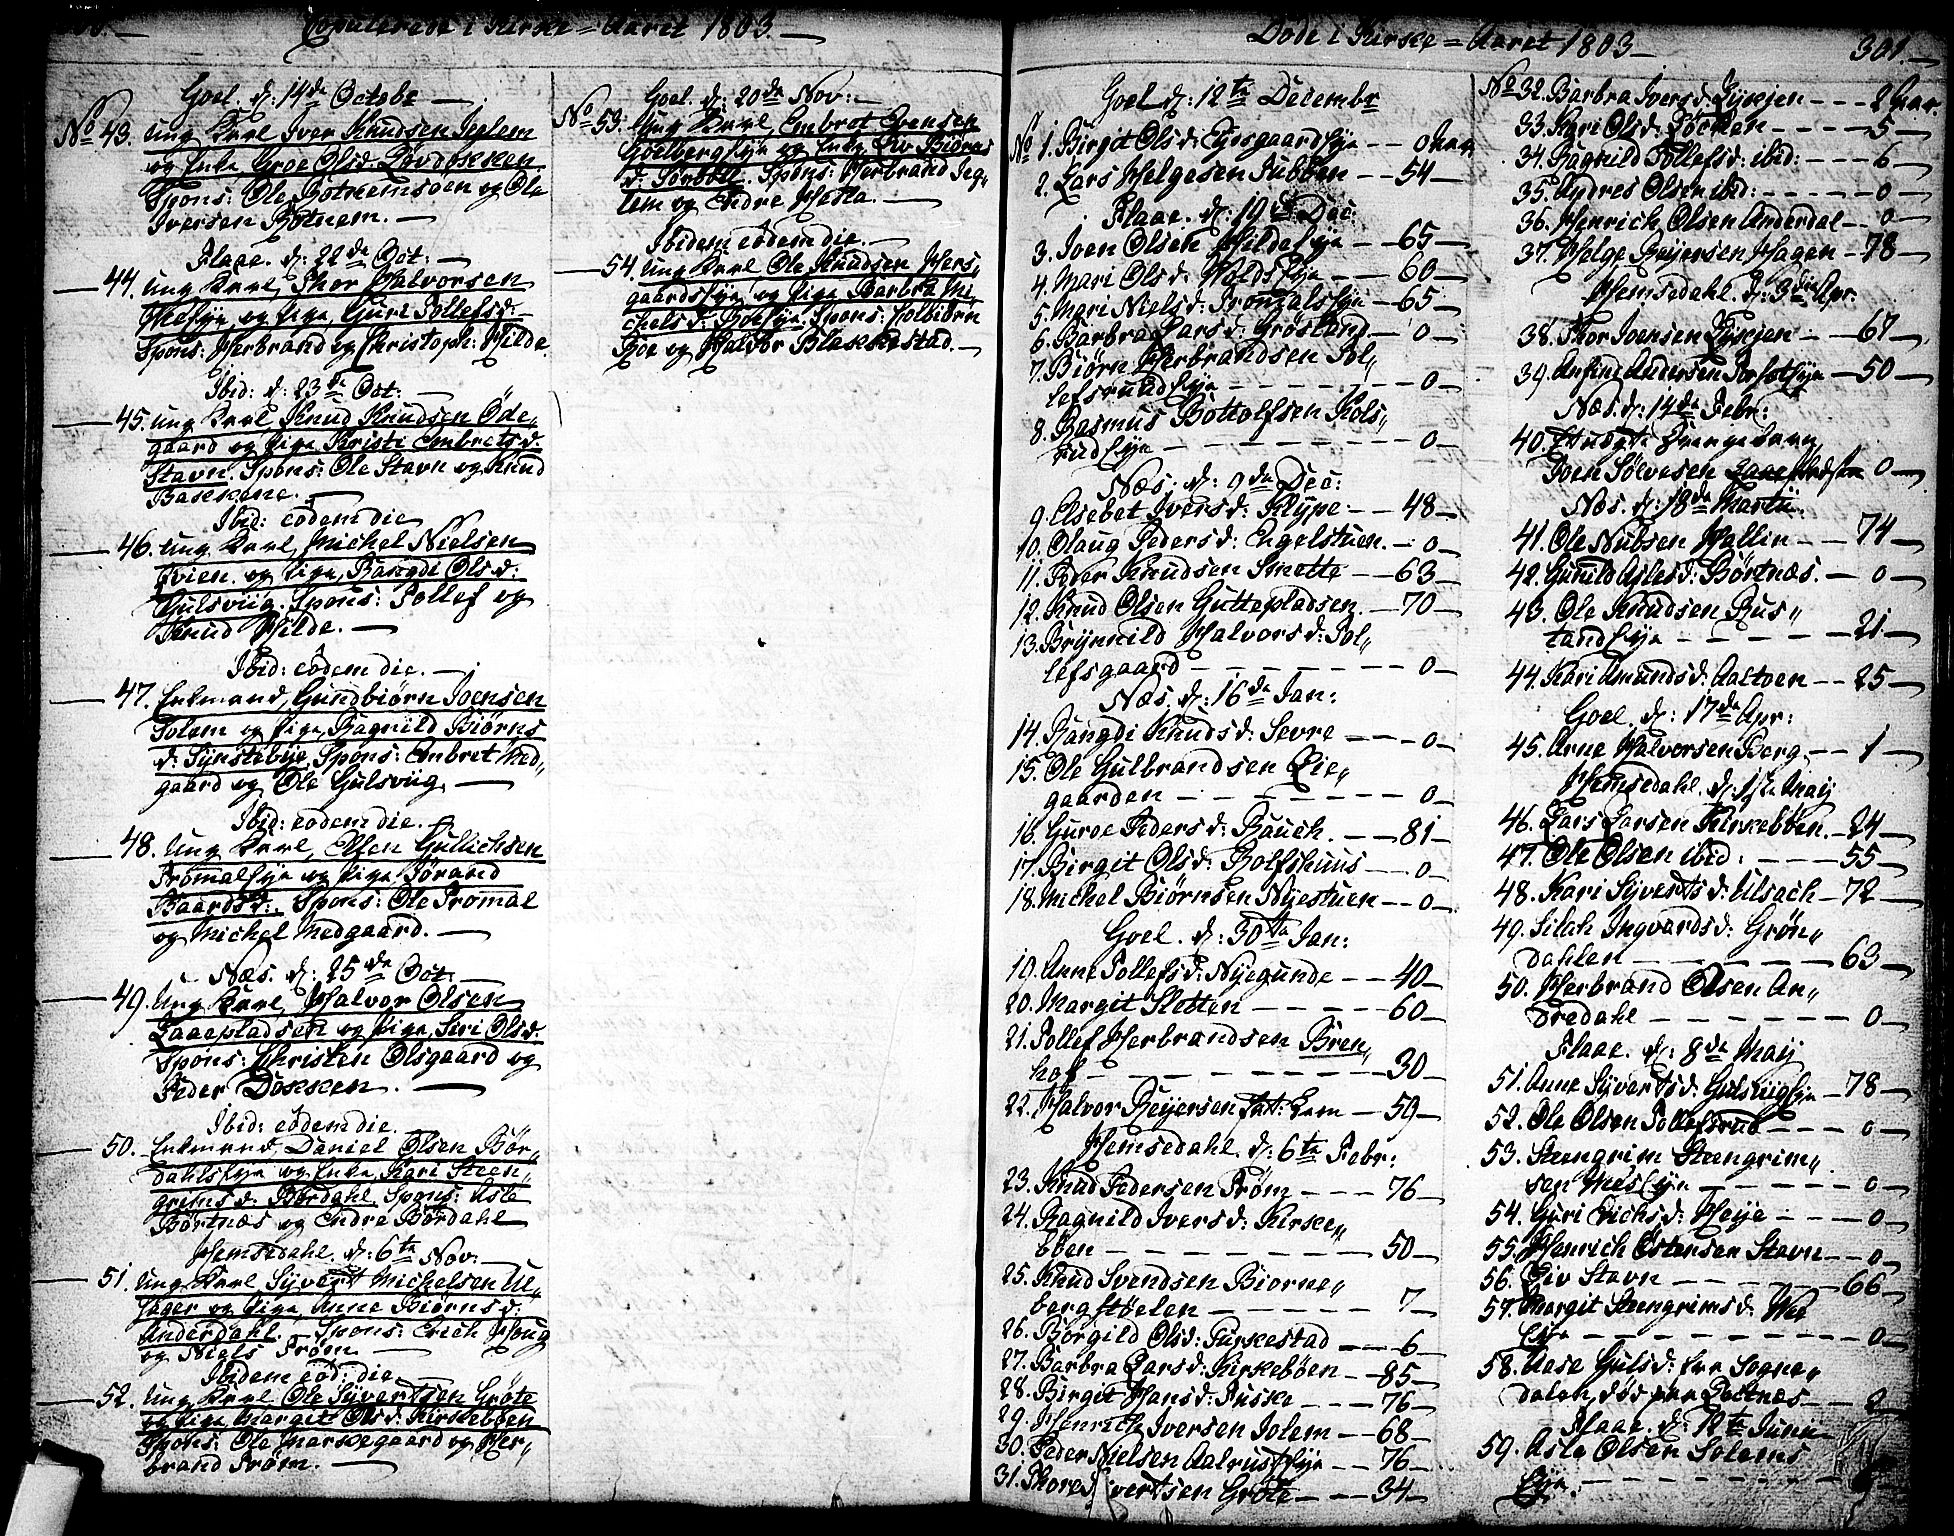 Copulerede i Kirke = Aaret 1803.
Goel. d: 14de Octobr
No 43. Ung Karl Iver Knudsen Jeglem
og Enke Groe Olsd: Løvdokken
Spons: Ole Botnemsøen og Ole
Iversen Botnem.
Flaae. d: 22de Oct:
44. Ung Karl, Thor Halvorsen
og Pige, Guri Tollefsd:
Spons: Herbrand og Christoph: Hilde
Ibid: d: 23de Oct:
45. Ung Karl Knud Knudsen Øde„
gaard og Pige Kristi Embretsd:
Stavn. Spons: Ole Stavn og Knud
Bakkene.
Ibid: eodem die
46. Ung Karl, Michel Nielsen
og Pige, Rangdi Olsd:
Gulsviig. Spons: Tollef og
Knud Hilde.
Ibid: eodem die.
47. Enkmand, Gundbiørn Joensen
Solem og Pige, Ragnild Biørns
d: Synstebye, Spons: Embret Med„
gaard og Ole Gulsviig.
Ibid: eodem die.
48. Ung Karl, Elsen Gullichsen
Trommalseye og Pige Jørand
Baardsd:. Spons: Ole Trommal
og Michel Medgaard.
Næs. d: 25de Oct:
49. Ung Karl, Halvor Olsen
Laaepladsen og Pige, Siri Olsd:
Spons: Christen Olsgaard og
Peder Dokken.
Ibid: eodem die.
50. Enkmand, Daniel Olsen Bør„
dahlseye og Enke, Kari Steen„
grimsd: Børdahl. Spons: Asle
Børtnæs og Endre Børdahl
Hemsedahl. d: 6te Nov:
51. Ung Karl Syvert Michelsen Ul„
sager og Pige, Anne Biørnsd:
Underdahl. Spons: Erich Houg
og Niels Trøm
Ibidem eod: die
52. Ung Karl Ole Syvertsen Grøte
og Pige, Margit Olsd: Kirkebøen
Spons: Ole Markegaard og Her„
brand Trøm.
Goel. d: 20de Nov:
No 53. Ung Karl, Embret Svensen
Golbergseye og Enke, Liv Biørns
d: Sørbøll. Spons: Herbrand Jeg„
lem og Endre Hesla.
Ibidem eodem die.
54. Ung Karl Ole Knudsen Hers„
gaardseye og Pige Barbra Mi„
chelsd: Roeseye. Spons: Tolbiørn
Roe og Halvor Blakkestad.
Døde i Kirke = Aaret 1803
301.
Goel d: 12te Decembr
No 1. Birgit Olsd: Eysgaardseye - - 0 Aar
2. Lars Helgesen Tubben - - 54
Flaae. d: 19de Dec:
3. Joen Olsen Hildeseye - - 65
4. Mari Olsd: - - 60
5. Mari Nielsd: Trommalseye - 65
6. Barbra Larsd: Grøsland - 0
7. Biørn Herbrandsen Tol„
lefsrudseye - - - 0
8. Rasmus Bottolfsen Kols„
rudseye - - - 0
Næs. d: 9de Dec:
9. Elsebet Iversd: Klype - - 48
10. Olaug Pedersd: Engelstuen. - 0
11. Peder Knudsen Smette - - 63
12. Knud Olsen Guttepladsen. - 70
13. Brynnild Halvorsd: Tol„
lefsgaard - - - 0
Næs. d: 16de Jan:
14. Rangdi Knudsd: Sevre - - 0
15. Ole Gulbrandsen Lie„
gaarden - - - 0
16. Guroe Pedersd: Rauch. - - 81
17. Birgit Olsd: Rolfshuus - - 0
18. Michel Biørnsen Nyestuen - - 0
Goel. d: 30te Jan:
19. Anne Tollefsd: Nyegunde - - 40
20. Margit Sletten - - - 60
21. Tollef Herbrandsen Bren„
hof - - - 30
22. Halvor Reyersen fat: Lem - 59
Hemsedahl. d: 6te Febr:
23. Knud Pedersen Trøm - - - 76
24. Ragnild Iversd: Kirke„
bøen - - - 50
25. Knud Svendsen Biørne„
bergstølen - - - 7
26. Børgild Olsd: Turkestad - - 6
27. Barbra Larsd: Kirkebøen - 85
28. Birgit Hansd: Tuske - - - 76
29. Henrich Iversen Solem - - 68
30. Peder Nielsen Aalrustseye - - 76
31. Thore Syvertsen Grøte - - - 34
No 32. Barbra Iversd: Lykjen - - - 2 Aar.
33. Kari Olsd: Løkken - - - - 5
34. Ragnild Tollefsd: ibid: - - - 6
35. Andres Olsen ibid: - - - 0
36. Henrich Olsen Anderdal - - 0
37. Helge Reyersen Hagen - 78
Hemsedahl. d: 3die Apr:
38. Thor Joensen Lykjen - - 67
39. Arfind Andersen - 50
Næs. d: 14de Febr:
40.
Joen Sølvesen 0
Næs. d: 18de Martii
41. Ole Nubsen Hallin - - 74
42. Gunild Aslesd: Børtnæs. - 0
43. Ole Knudsen Rus„
tandseye - - - 21
44. Kari Amundsd: Aaltven - - 25
Goel. d: 17de Apr:
45. Arne Halvorsen Berg - - 1
Hemsedahl. d: 1te Maij
46. Lars Larsen Kirkebøen. - 24
47. Ole Olsen ibid: - - - 55
48. Kari Syvertsd: Ulsach - 72
49. Silah Ingvardsd: Grøn„
dahlen - - - 63
50. Herbrand Olsen An„
dredahl - - - 0
Flaae. d: 8de Maij
51. Anne Syvertsd: Gulsviigseye - 78
52. Ole Olsen Tollefsrud - - 0
53. Steengrim Steengrim„
sen - - - 0
54. Guri Erichsd: Heije - - - 0
55. Henrich Østensen Stavn - - 0
56. Liv Stavn - - - 66
57. Margit Steengrimsd:
- - - 0
58. Aase Gulsd: fra Sogne„
dalen, død paa - - 2
Flaae. d: 12te Junii
59. Asle Olsen Solems
Eye. - - -